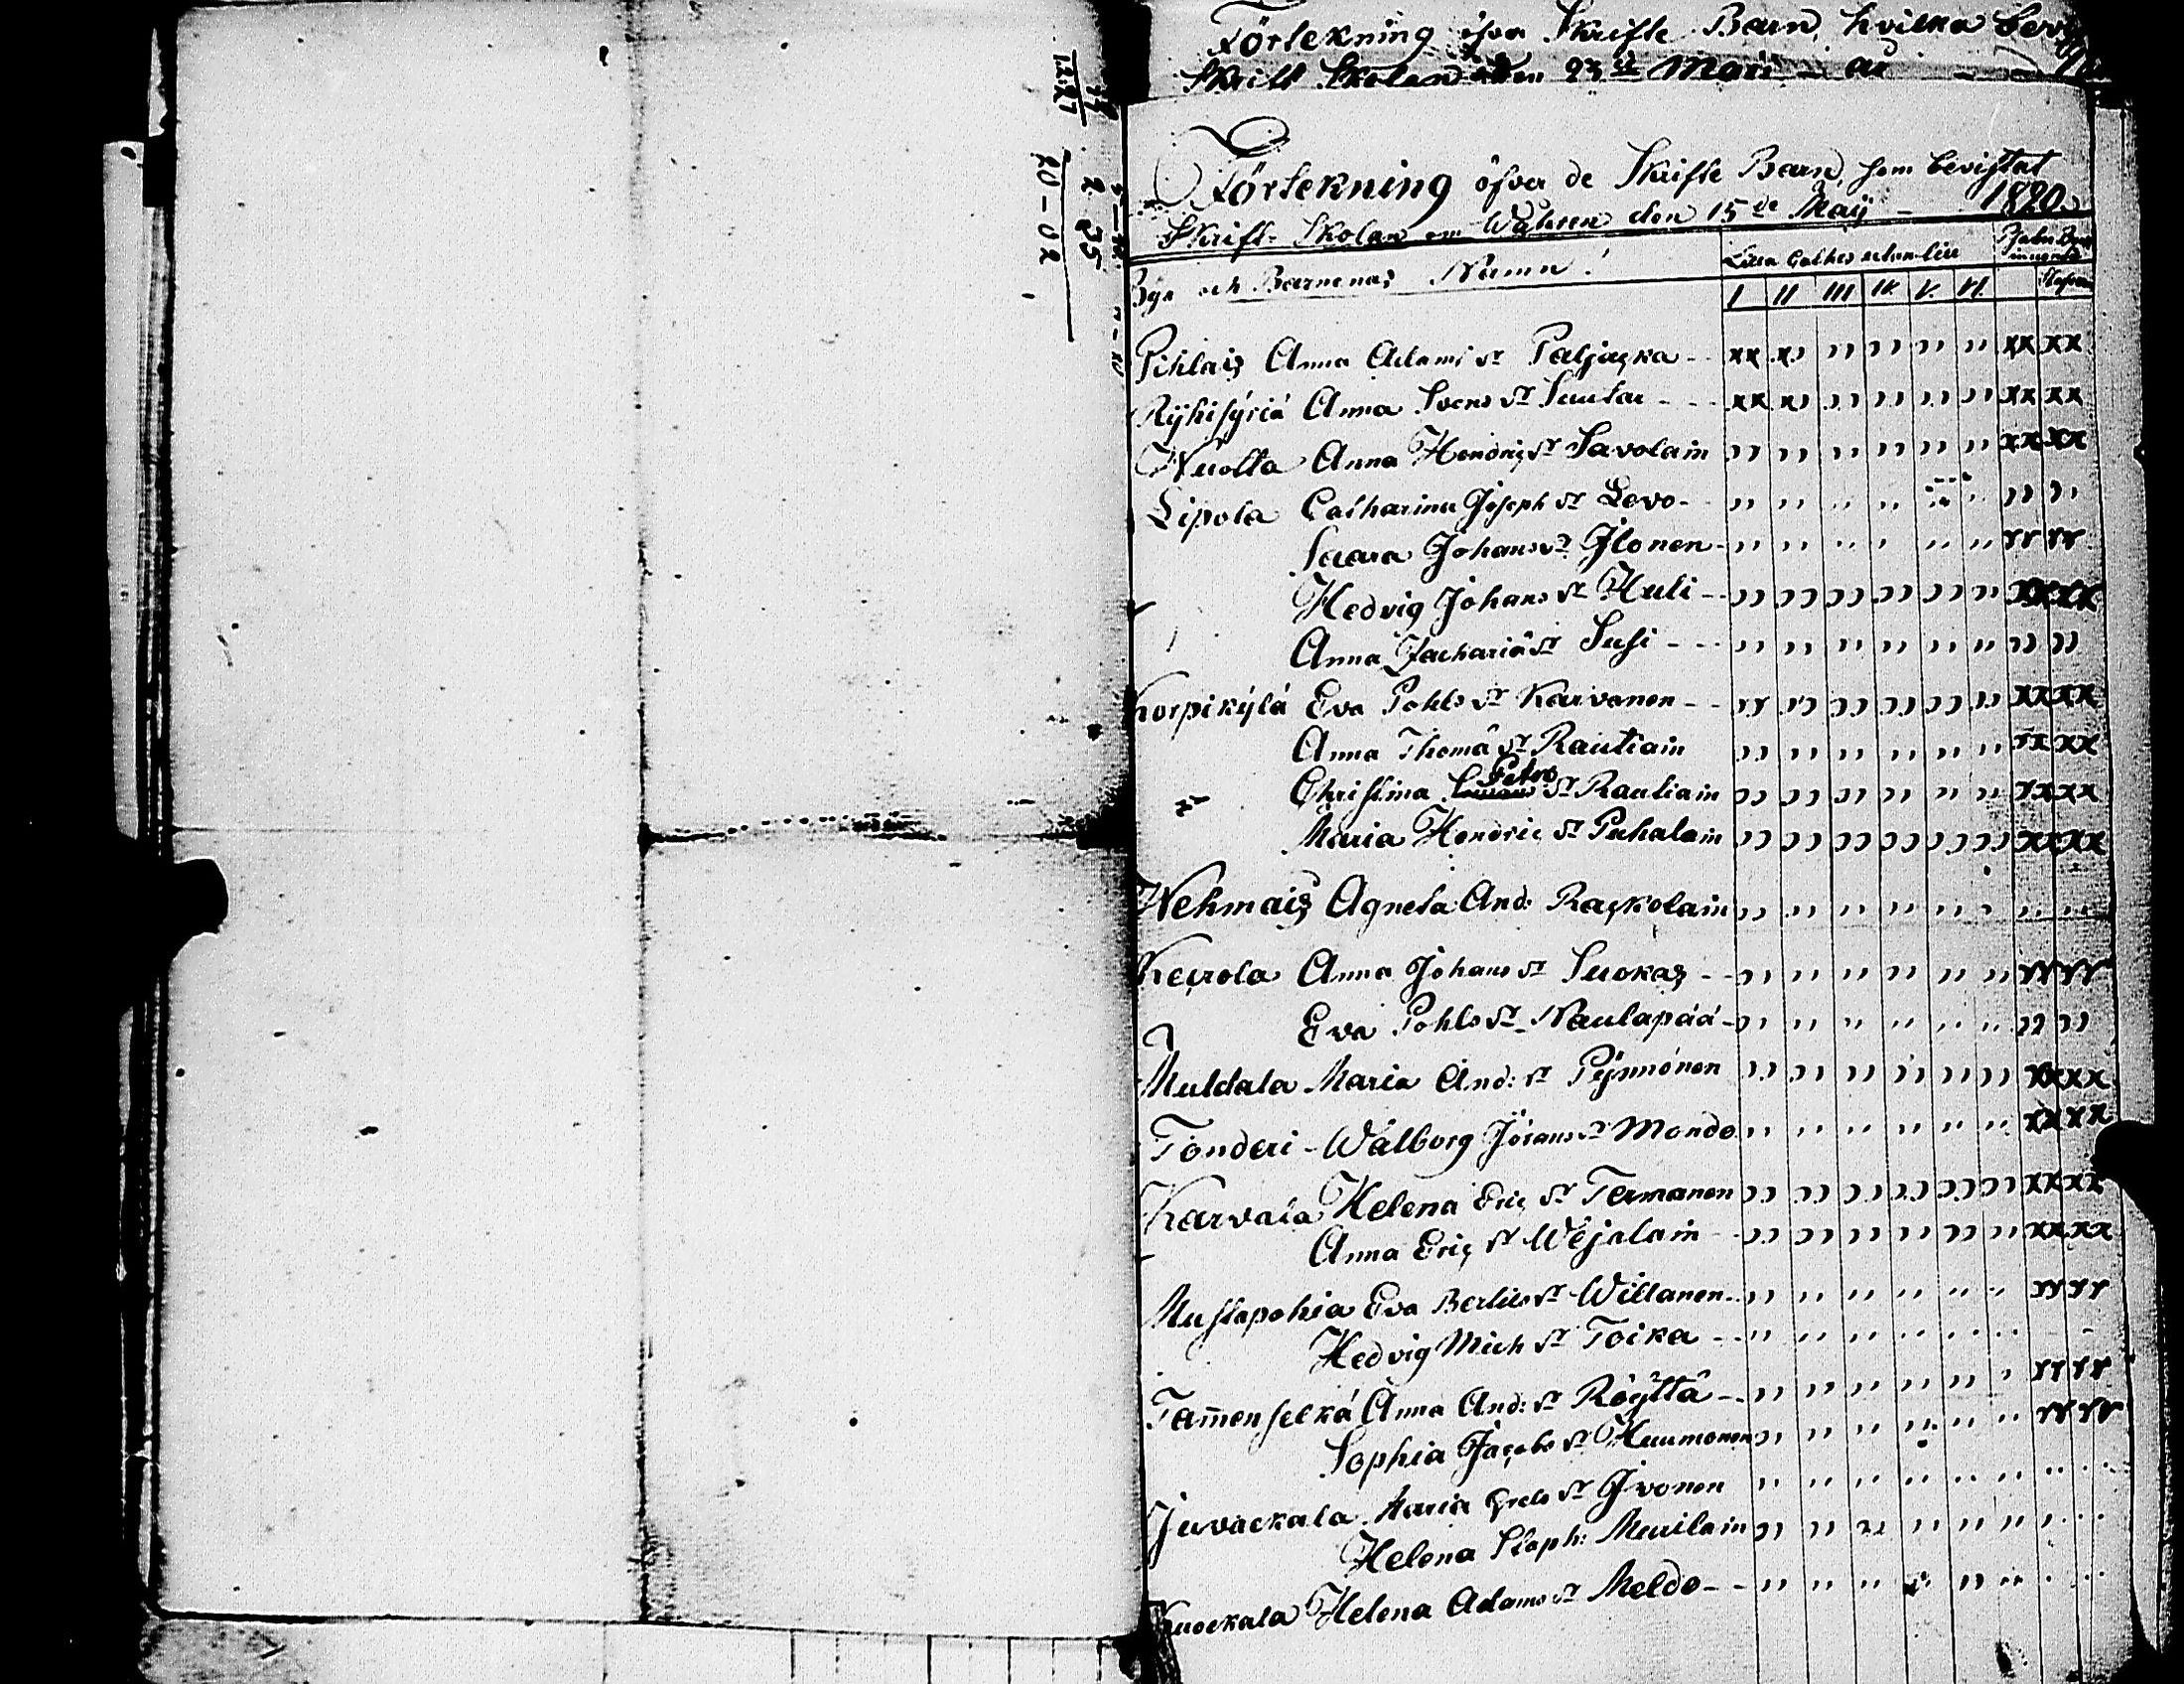 Förtekning öfver Skrifte Barn, hvilka
Skrift Skolan den 23de Maii år
Förtekning öfver de Skrifte Barn, som bevistat
Skrift-Skolan om Wåhren den 15de Maij - 1820.
Byn och Barnenas Namn.
I II III IV. V. VI.
Pihlais Anna Adams dr Paljacka
Rÿhisÿriä Anna Svens dr Suutar
Nuolta Anna Hendrics dr Savolain
Lipola Catharina Joseph dr Levo
Saara Johans dr Ilonen
Hedvig Johans dr Huli
Anna Zachariä dr Susi
Korpikÿlä Eva Pohls dr Karvanen
Anna Thomä dr Rautiain
Christina Petrs dr Rautiain
Maria Hendric dr Puhalain
Wehmais Agneta And: Raskolain
Keirola Anna Johans dr Suokas
Eva Pohls dr Naulapää
Muldala Maria And: dr Pÿnnönen
Tonderi - Wålborg Jörans dr Mondo
Karvala Helena Erics dr Termonen
Anna Erics dr Wejalain
Mustapohia Eva Bertils dr Willanen
Hedvig Mich dr Toika
Tam̄enselkä Anna And: dr Röÿttä
Sophia Jacobs dr Huumonen
Juvaekala Maria Grels dr Ivonen
Helena Staph: Muurilain
Kuockala Helena Adams dr Meldo